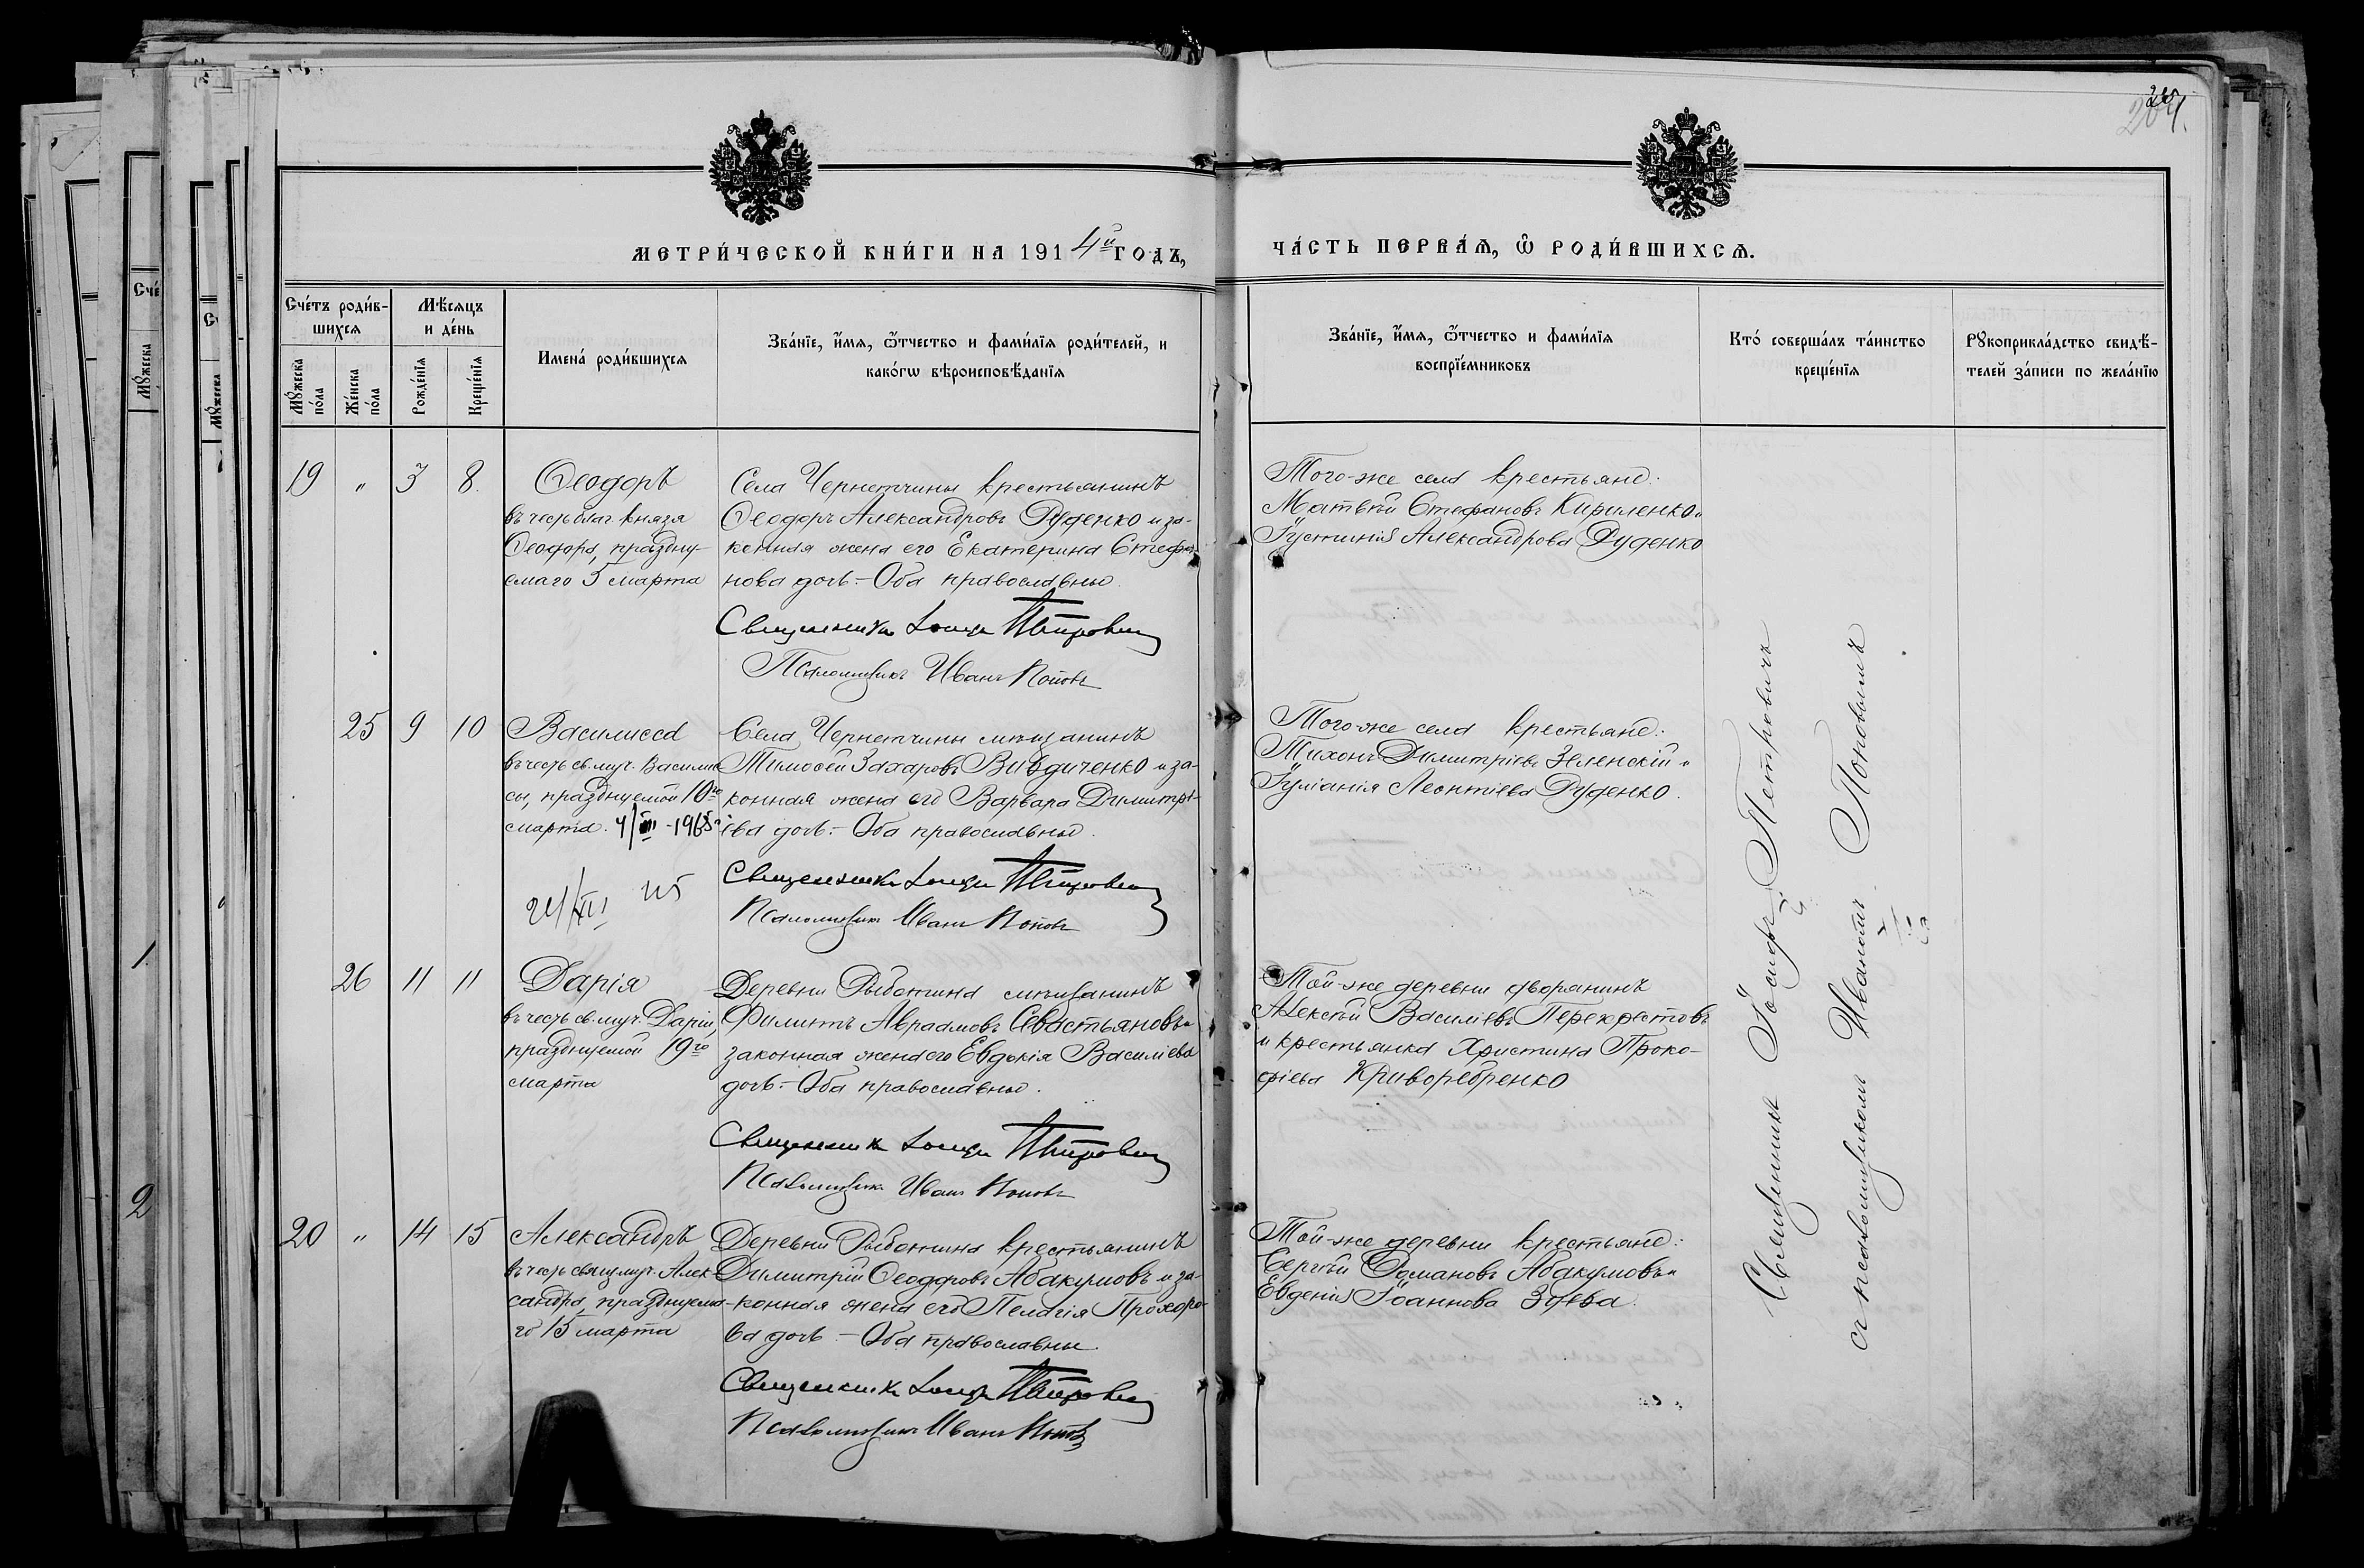 204.
МЕТРИ́ЧЕСКОЙ КНИ́ГИ НА 1914й ГОДЪ,
ЧА́СТЬ ПЕРВА́Ѧ, Ѽ РОДИ́ВШИХСѦ.
Сче́тъ роди́в-
шихсѧ
Мѣ́сяцъ
и де́нь
Мꙋ́жеска
по́ла
Же́нска
по́ла
Рожде́нїѧ
Креще́нїѧ
Имена́ роди́вшихсѧ
Зва́нїе, и҆́мѧ, ѻ҆́тчество и фами́лїѧ роди́телей, и
како́гѡ вѣроисповѣ́данїѧ
Зва́нїе, и҆́мѧ, ѻ҆́тчество и фами́лїѧ
воспрїе́мниковъ
Кто́ соверша́лъ та́инство
креще́нїѧ
Рꙋкоприкла́дство свидѣ́-
телей за́писи по жела́нїю
19 „ 3 8.
Ѳеодоръ
въ честь благ. Князя
Ѳеодора, праздну-
емаго 5 марта
Села Чернетчины крестьянинъ
Ѳеодоръ Александровъ Руденко и за-
конная жена его Екатерина Стефа-
нова дочь.- Оба православные.
Священникъ Іосифъ Петровичъ
Псаломщикъ Иванъ Поповъ
Того-же села крестьяне:
Матвѣй Стефановъ Кириленко и
Іустинія Александрова Руденко
25 9 10
Василисса
въ честь св. муч. Васили-
сы, празднуемой 10го
марта. 4/III-1965
24/XII
Села Чернетчины мѣщанинъ
Тимоѳей Захаровъ Вивдиченко и за-
конная жена его Варвара Димитрі-
ева дочь.- Оба православные.
Священникъ Іосифъ Петровичъ
Псаломщикъ Иванъ Поповъ
Того-же села крестьяне:
Тихонъ Димитріевъ Зеленскій и
Іуліанія Леонтіева Руденко.
26 11 11
Дарія
въ честь св. муч. Даріи,
празднуемой 19го
марта
Деревни Рыботина мѣщанинъ
Филиппъ Авраамовъ Севастьяновъ и
законная жена его Евдокія Василіева
дочь.- Оба православные.
Священникъ Іосифъ Петровичъ
Псаломщикъ Иванъ Поповъ
Той-же деревни дворянинъ
Алексѣй Василіевъ Перекрестовъ
и крестьянка Христина Проко-
фіева Криворебренко
20 „ 14 15
Александръ
въ честь свящмуч. Алек-
сандра, празднуема-
го 15 марта
Деревни Рыботина крестьянинъ
Димитрій Ѳеодоровъ Абакумовъ и за-
конная жена его Пелагія Прохоро-
ва дочь.- Оба православные.
Священникъ Іосифъ Петровичъ
Псаломщикъ Иванъ Поповъ
Той-же деревни крестьяне:
Сергѣй Романовъ Абакумовъ и
Евгенія Іоаннова Зуева.
Священникъ Іосифъ Петровичъ
съ псаломщикомъ Иваномъ Поповымъ